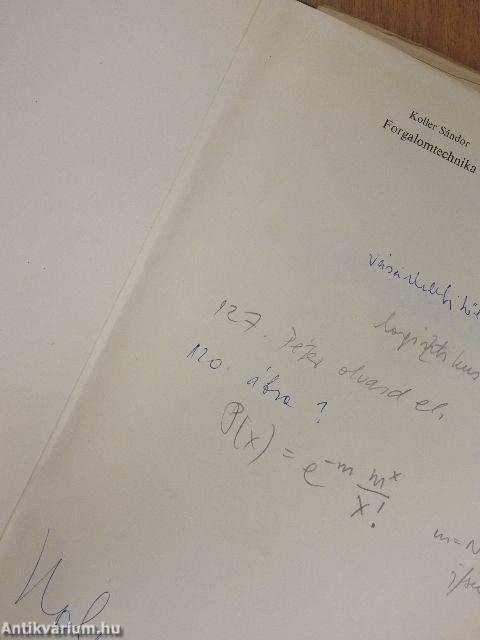 Koller Sándor
Forgalomtechnika
logisztikus
127. Péter olvasd el,
120. ábra ?
P(x) = e^-m m^x / x!
m=N
Antikvárium.hu